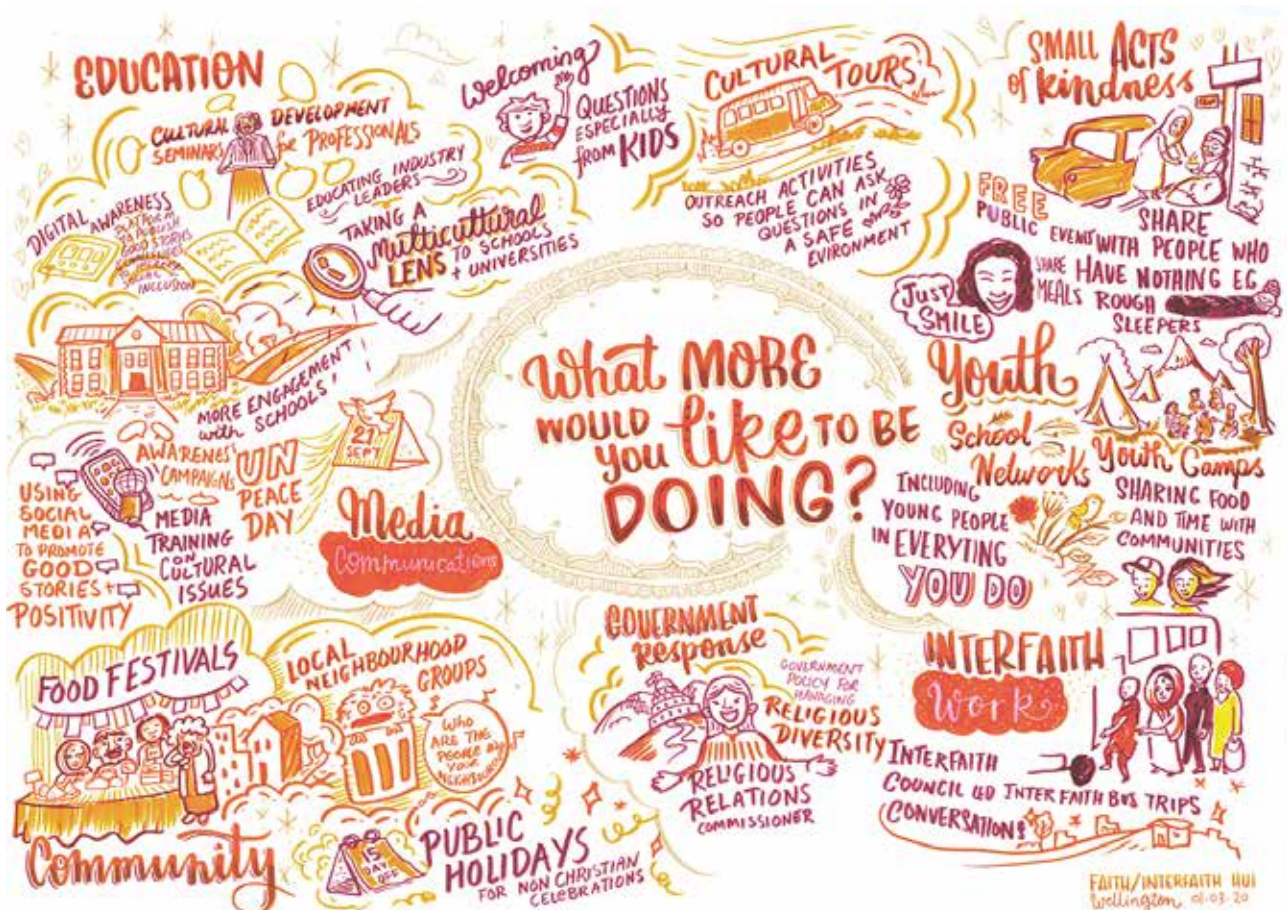 EDUCATION
CULTURAL DEVELOPMENT
SEMINARS for PROFESSIONALS
EDUCATING INDUSTRY
LEADERS
DIGITAL AWARENESS
GOOD STORIES
INCLUSION
TAKING A
Multicultural
LENS TO SCHOOLS
+ UNIVERSITIES
MORE ENGAGEMENT
with SCHOOLS!
Welcoming
QUESTIONS
ESPECIALLY
from KIDS
CULTURAL
TOURS
OUTREACH ACTIVITIES
SO PEOPLE CAN ASK
QUESTIONS IN
A SAFE
EVIRONMENT
SMALL ACTS
of kindness
FREE
PUBLIC EVENT
SHARE
WITH PEOPLE WHO
HAVE NOTHING EG.
ROUGH
SLEEPERS
SHARE
MEALS
JUST
SMILE
What MORE
WOULD
you like TO BE
DOING?
Youth
AND
School
Networks
INCLUDING
YOUNG PEOPLE
IN EVERYTING
YOU DO
Youth Camps
SHARING FOOD
AND TIME WITH
COMMUNITIES
AWARENESS
CAMPAIGNS
UN
PEACE
DAY
21ST
SEPT
USING
SOCIAL
MEDIA
TO PROMOTE
GOOD
STORIES +
POSITIVITY
MEDIA
TRAINING
ON
CULTURAL
ISSUES
Media
Communications
FOOD FESTIVALS
LOCAL
NEIGHBOURHOOD
GROUPS
WHO
ARE THE
PEOPLE IN
YOUR
Community
15
DAY
OFF
PUBLIC
HOLIDAYS
FOR NON CHRISTIAN
CELEBRATIONS
GOVERNMENT
Response
GOVERNMENT
POLICY FOR
MANAGING
RELIGIOUS
DIVERSITY
RELIGIOUS
RELATIONS
COMMISSIONER
INTERFAITH
Work
INTERFAITH
COUNCIL LED INTERFAITH BUS TRIPS
CONVERSATIONS
FAITH/INTERFAITH HUI
Wellington 01.03.20